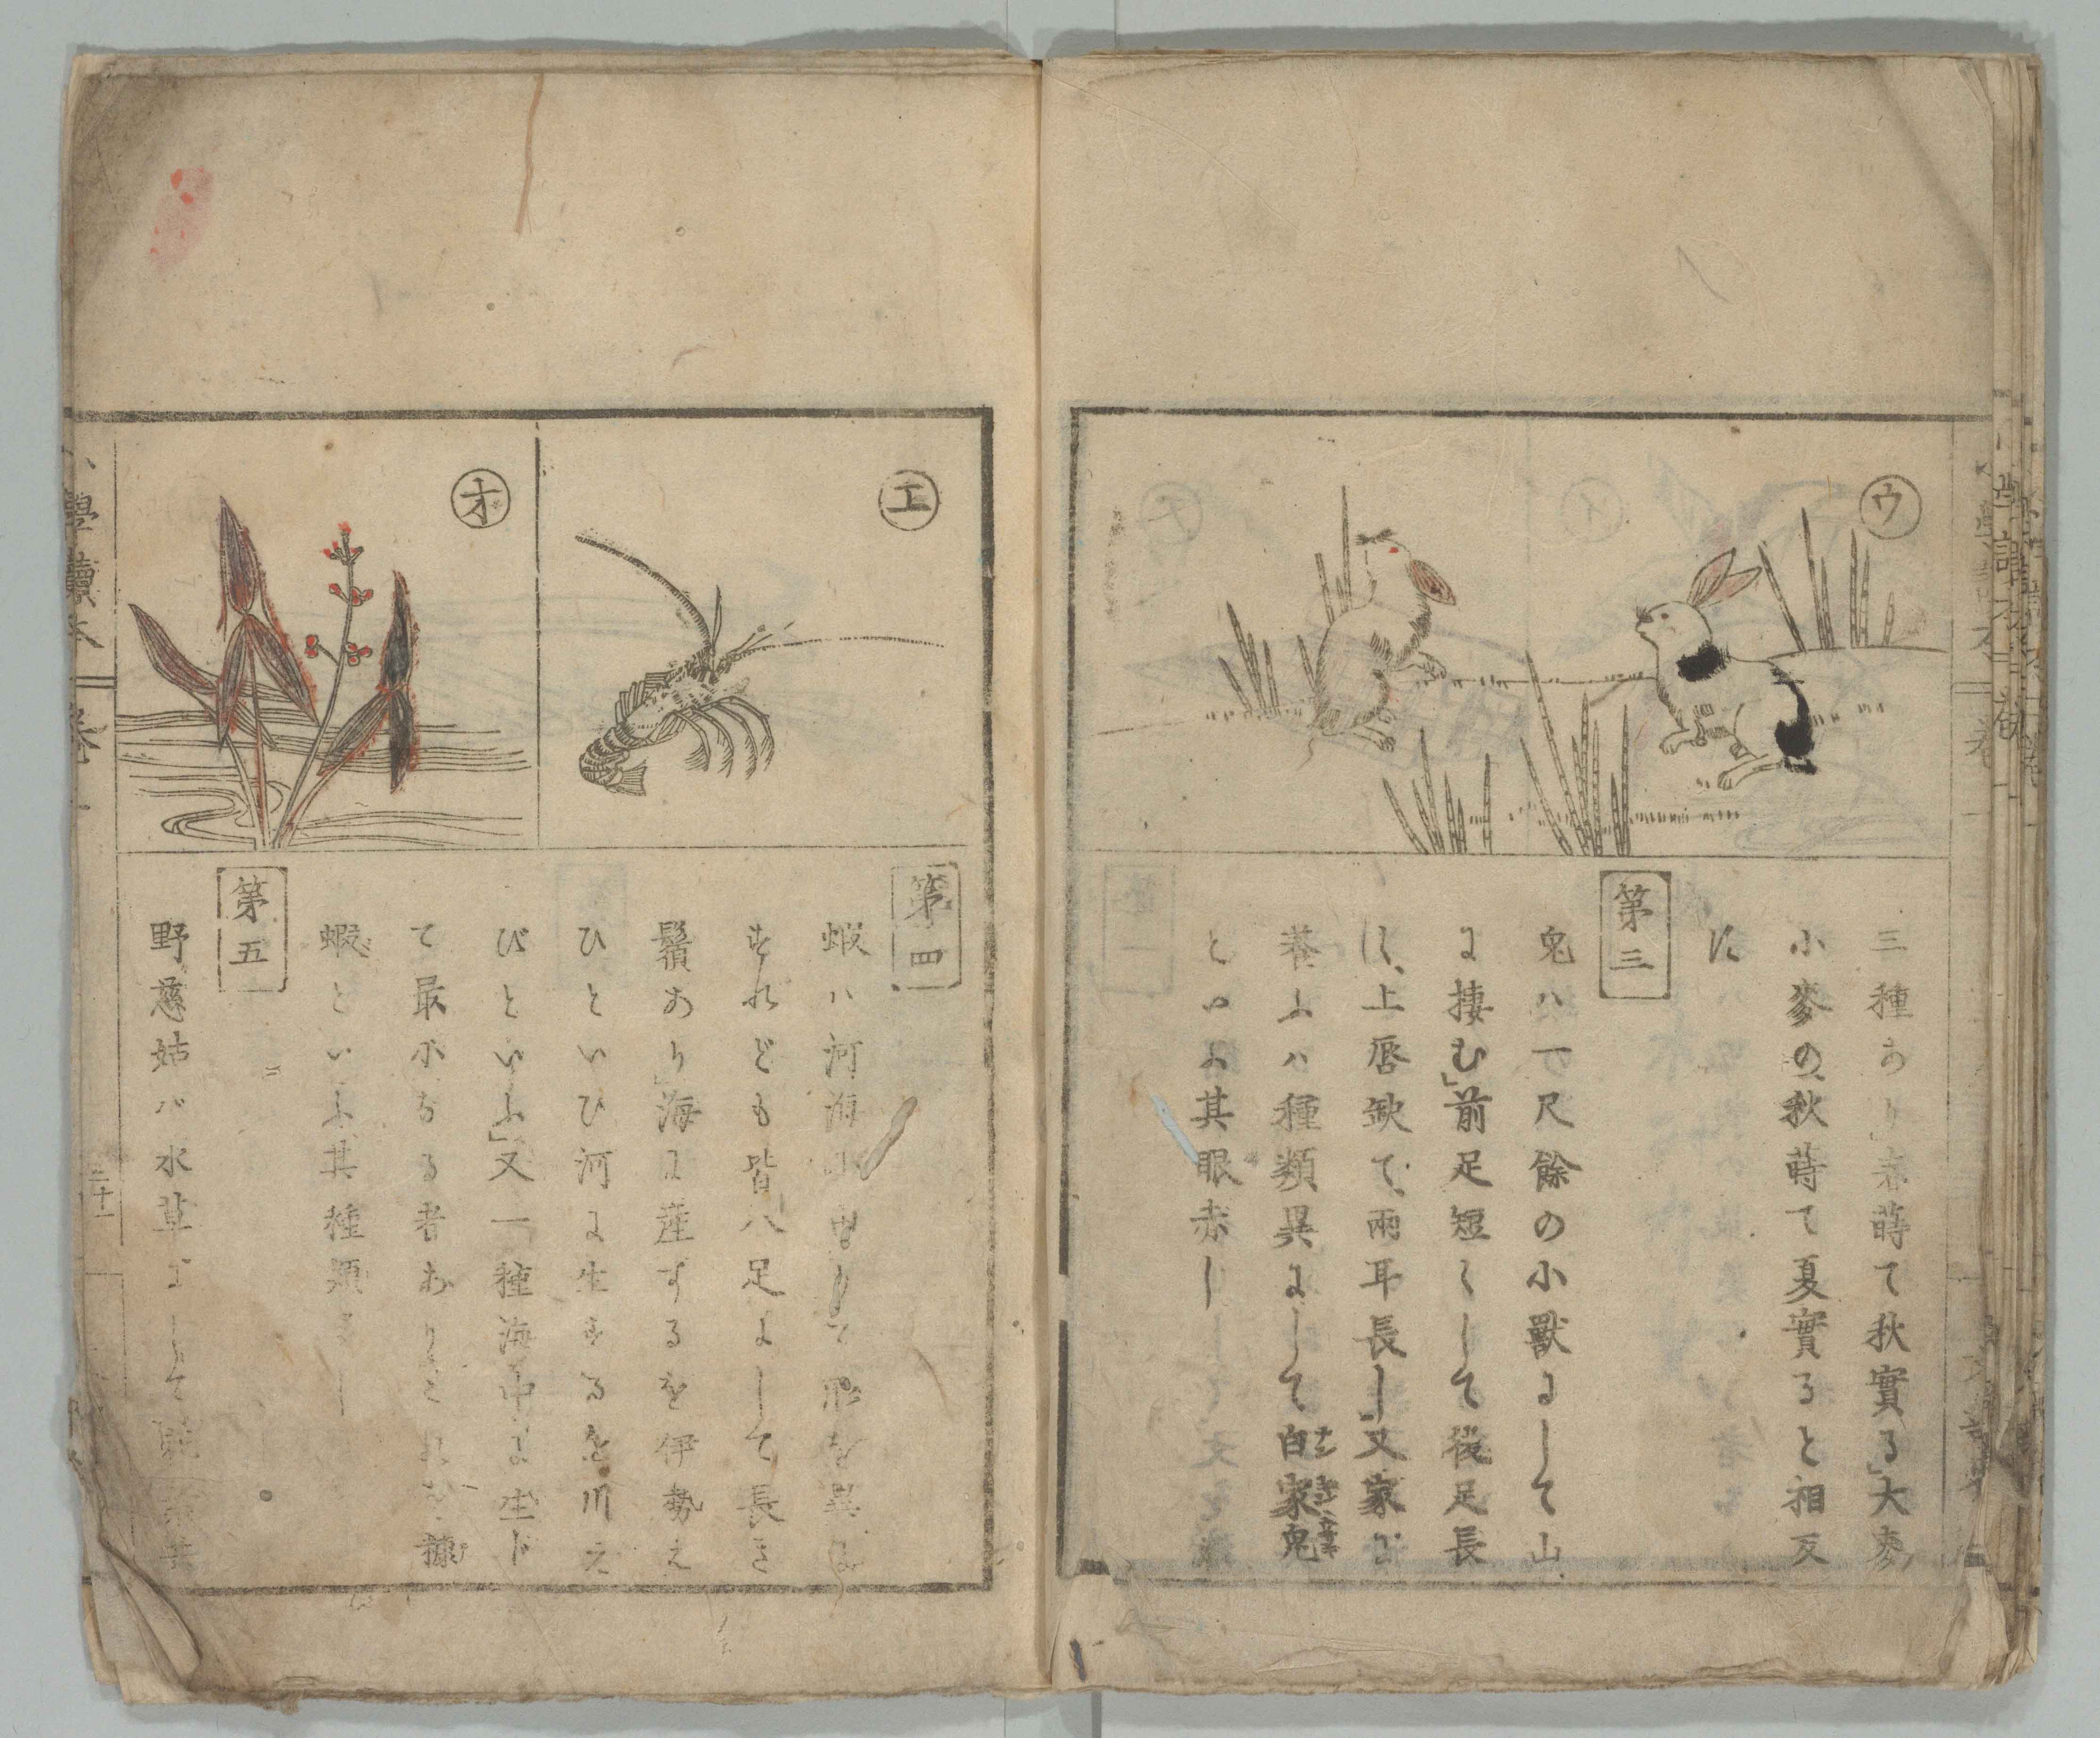 ウ
三種あり」春蒔て秋實る」大麥
小麥の秋蒔て夏實ると相反
す
第三
兎ハ一尺餘の小獸にして山
に棲む」前足短くして後足長
く、上唇缺て、兩耳長し」又家に
養ふハ種類異にして白家兎
といふ其眼赤し
エ
オ
第四
蝦ハ河海に由りて形を異に
すれども皆八足にして長き
鬚あり」海に産するを伊勢え
びといひ河に生ずるを川え
びといふ」又一種海中に生じ
て最小なる者ありこれを糠
蝦といふ其種類多し
第五
野慈姑ハ水草にして
小學讀本 卷
二十一